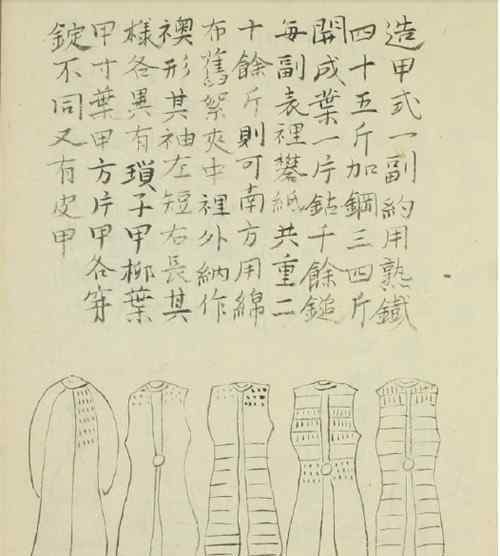 造甲式一副約用熟鐵
四十五斤加鋼三四斤
開成葉一片鉆千餘鎚
每副表裡紙共重二
十餘斤則可南方用綿
布舊絮夾中裡外納作
襖形其袖左短右長其
樣各異有瑣子甲柳葉
甲寸葉甲方片甲各穿
錠不同又有皮甲